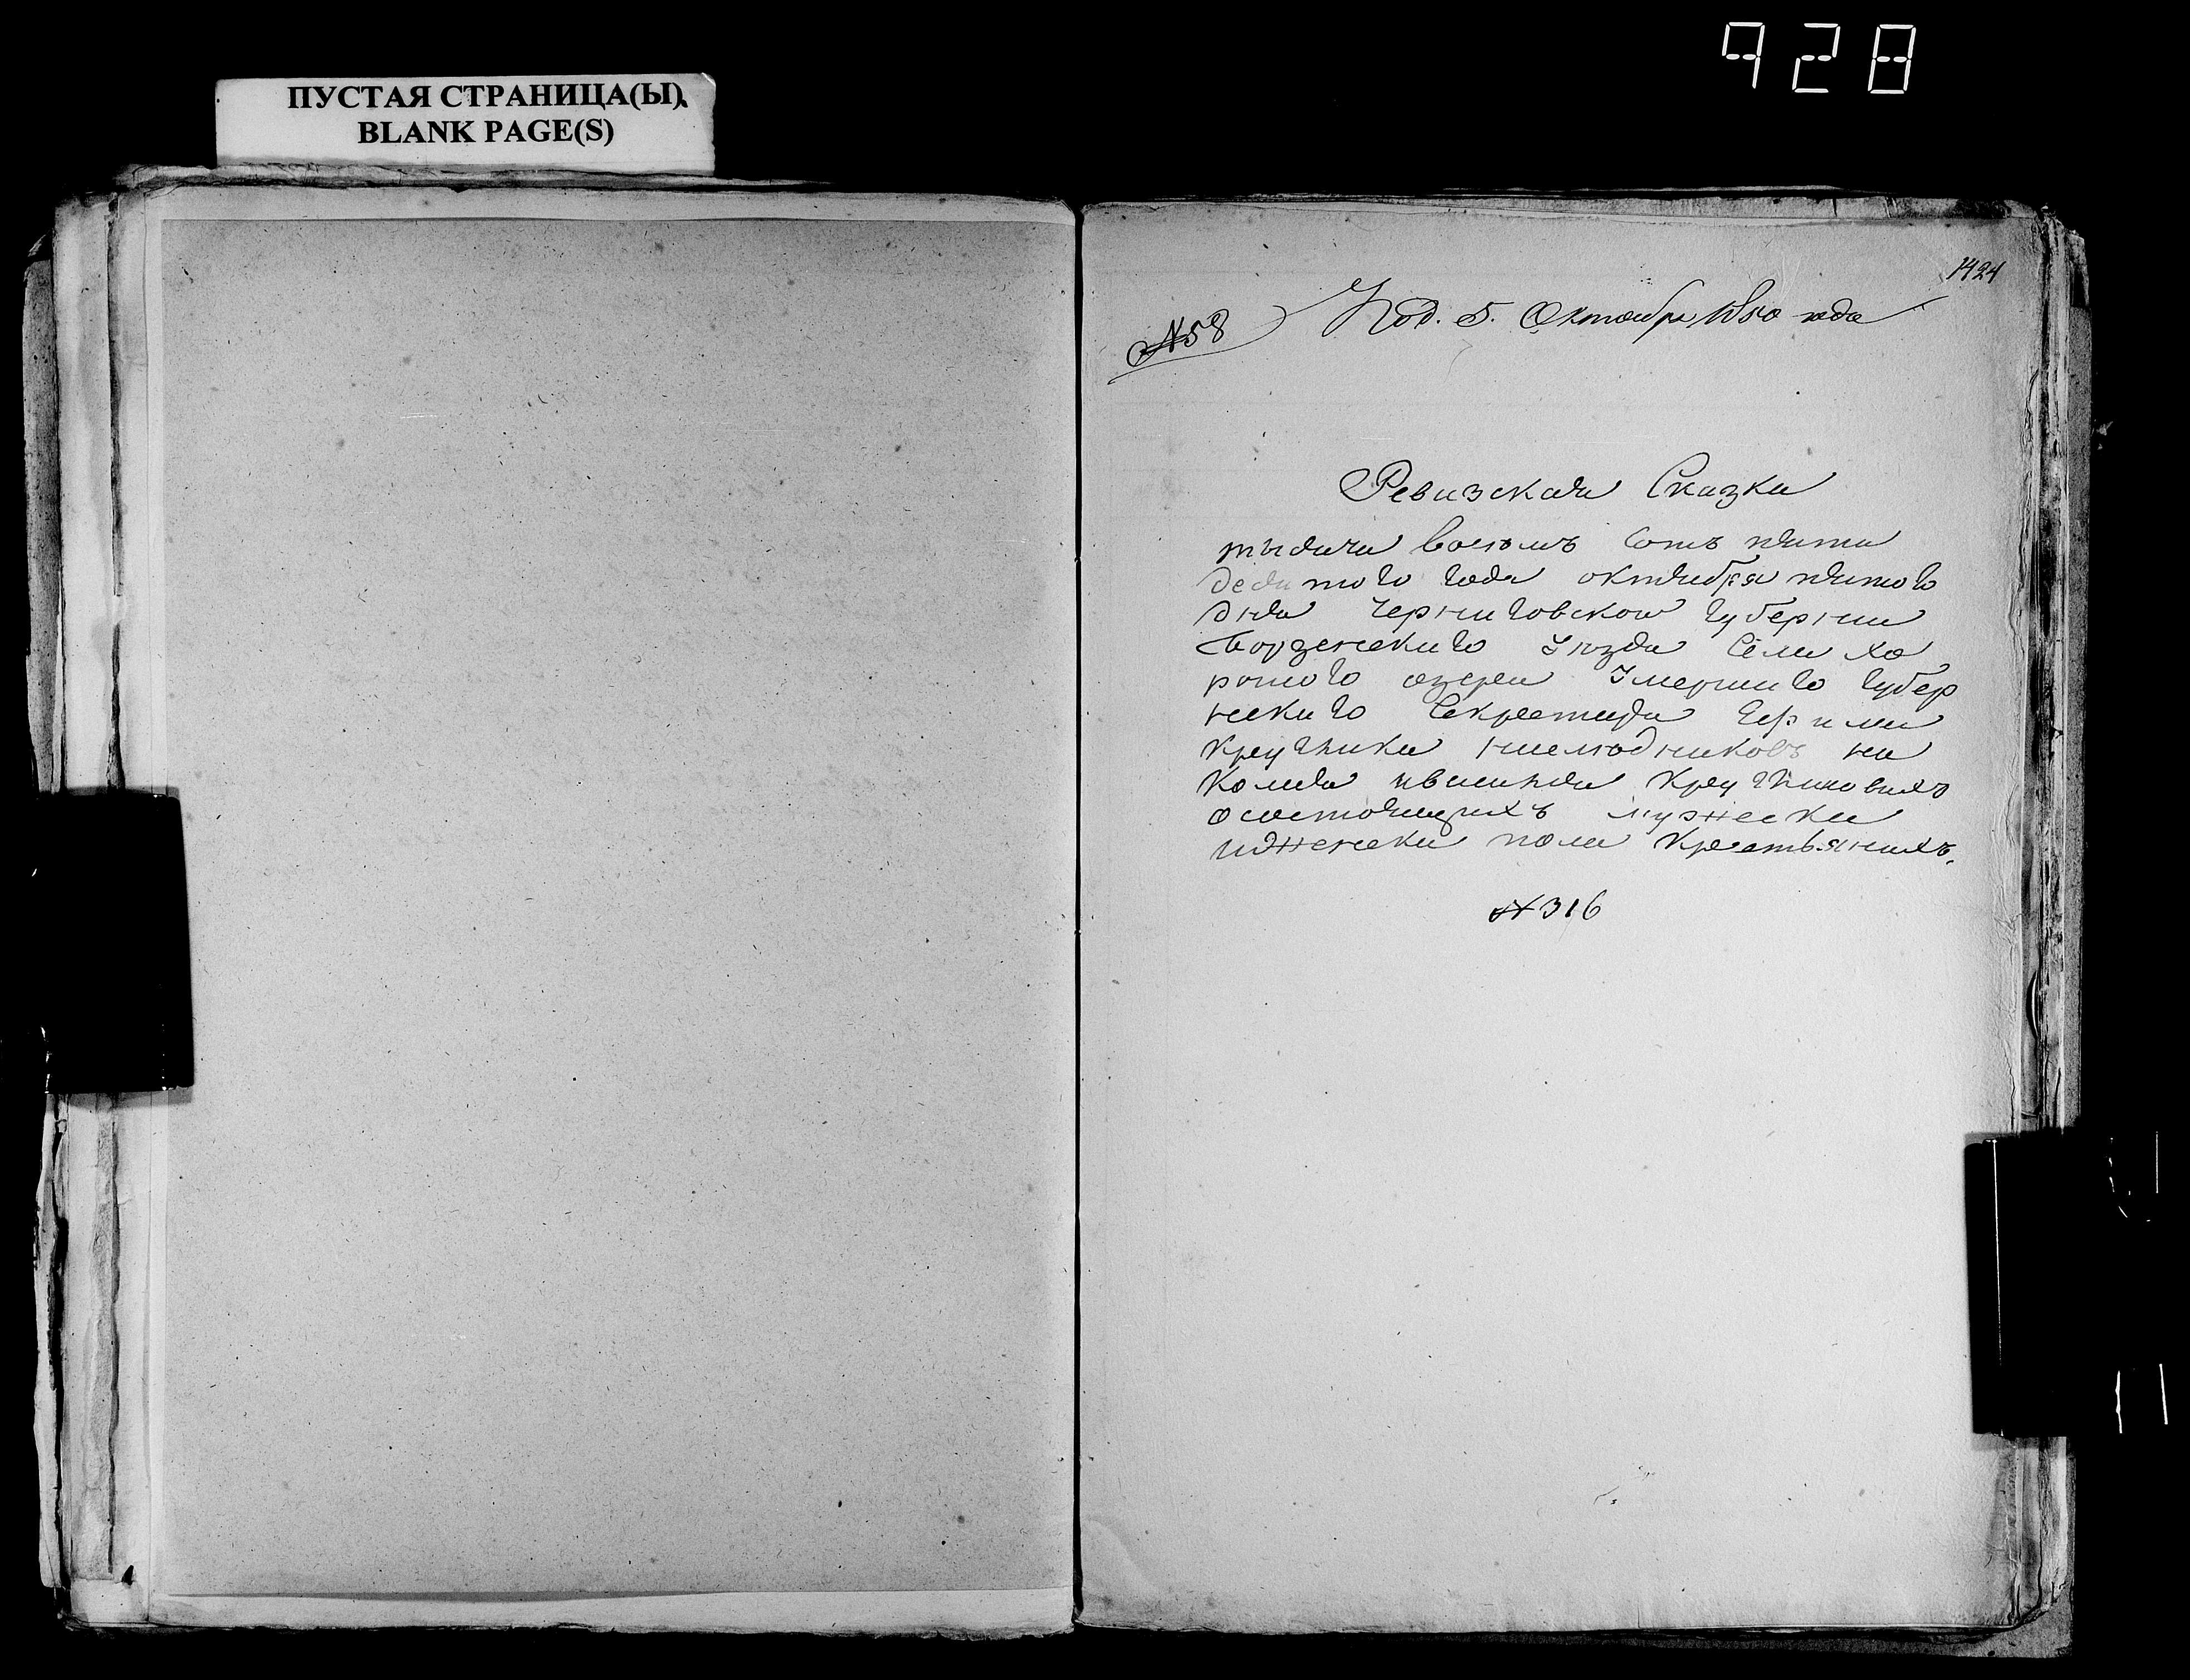 928
ПУСТАЯ СТРАНИЦА(Ы).
BLANK PAGE(S)
1424
№58
Под. 5. Октября 1850 года
Ревизская Сказка
тысяча восюмъ сотъ пята
десятого года октября пятого
дня Черниговской губернии
Борзенского Уюзда Села Хо
рошого озера Умершого губер
нского Секретаря Ефима
наслюдниковъ ни
колая
осастоящихъ мужеска
иженска пола Крестьянахъ.
№316